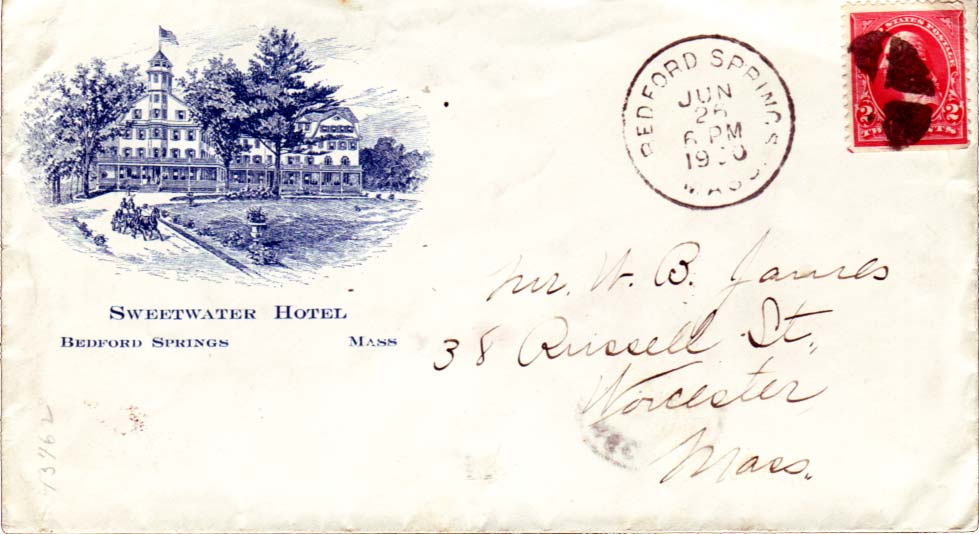 SWEETWATER HOTEL
BEDFORD SPRINGS MASS
BEDFORD SPRINGS
JUN
6 PM
MASS.
STATES POSTAGE
2 2
Mr. W. B. James
38 Russell St.,
Worcester
Mass.